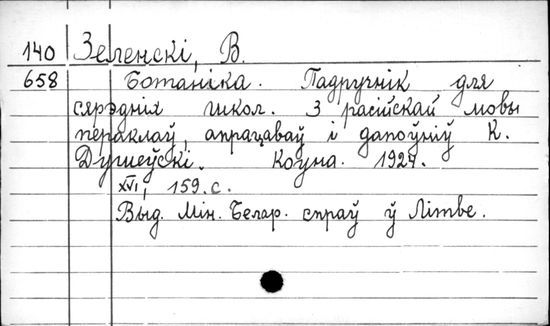 140 Зеленскі, В.
658 Ботаніка. Падручнік для
сярэдніх школ. З расійскай мовы
пераклаў, апрацаваў і дапоўніў К.
Душеўскі. Коўна. 1924.
XVI, 159.с.
Выд. Мін. Белар. спраў ў Літве.